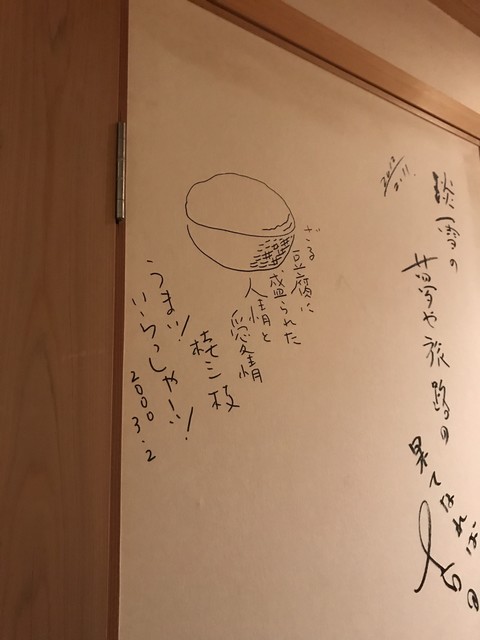 淡雪の
夢や旅路の
果てなれば
2.11.
ざる
豆腐に
盛られた
人情と
愛情
桂三枝
うまッ!
いらっしゃーい!
2000 3.2